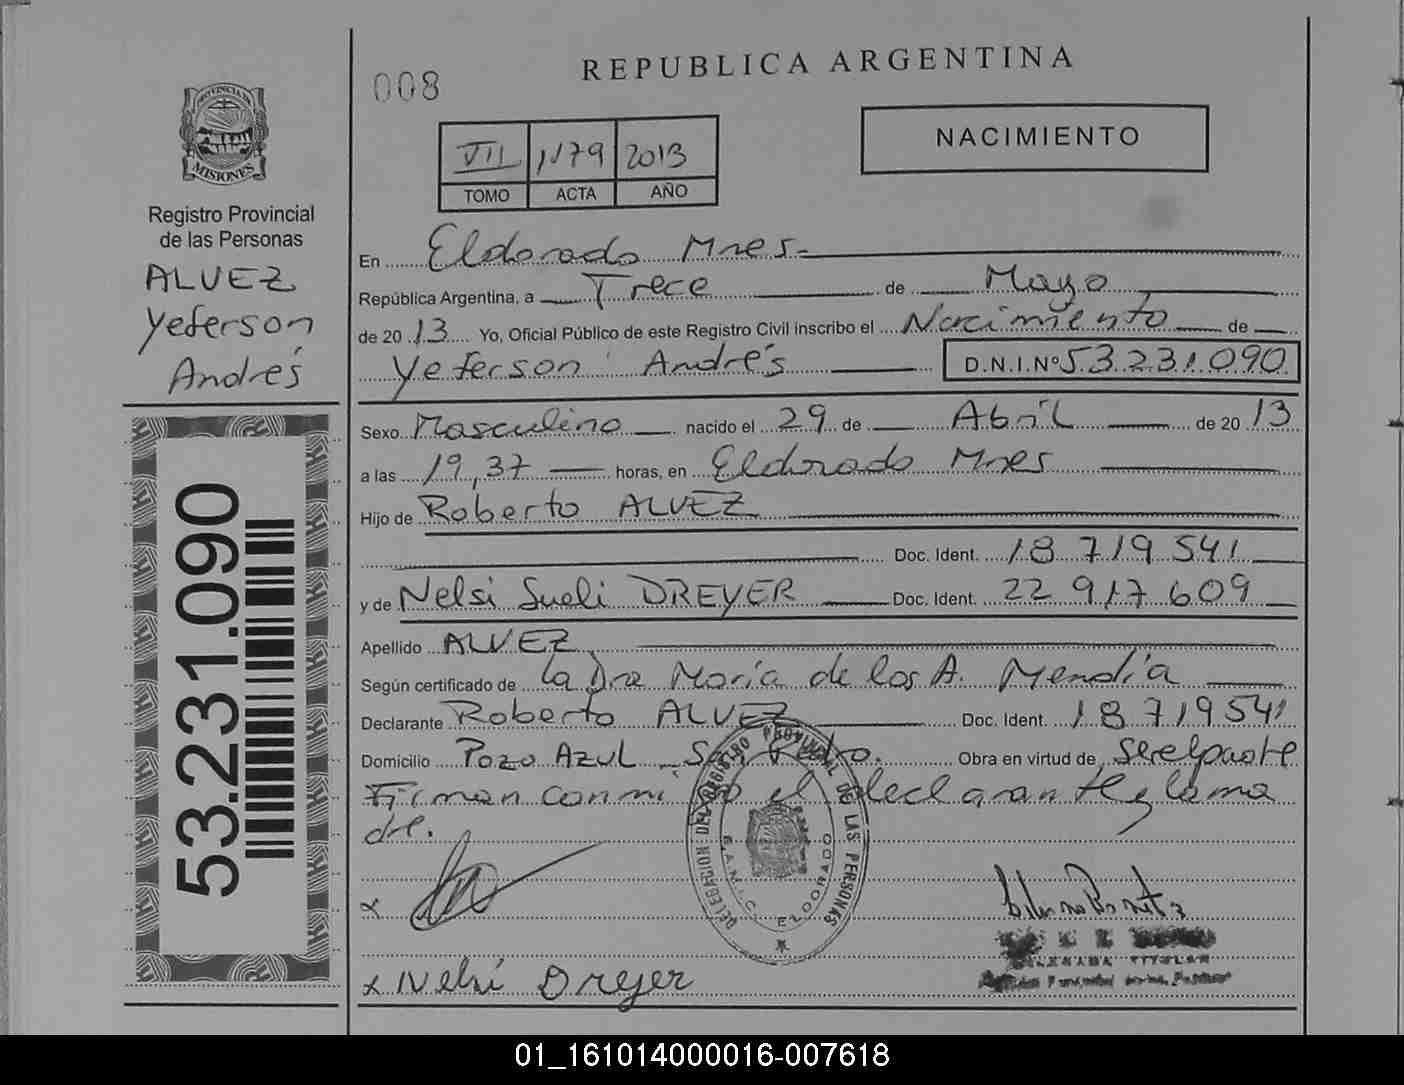 008
REPUBLICA ARGENTINA
NACIMIENTO
VII 1179 2013
TOMO ACTA AÑO
PROVINCIA DE
MISIONES
Registro Provincial
de las Personas
ALVEZ
Yeferson
Andrés
53.231.090
En Eldorado Mnes.
República Argentina, a Trece de Mayo
de 2013 Yo, Oficial Público de este Registro Civil inscribo el Nacimiento de
Yeferson Andrés D.N.I.Nº 53.231.090
Sexo Masculino nacido el 29 de Abril de 2013
a las 19,37 horas, en Eldorado Mnes
Hijo de Roberto ALVEZ
Doc. Ident. 18 719 541
y de Nelsi Sueli DREYER Doc. Ident. 22 917 609
Apellido ALVEZ
Según certificado de La Dra María de los A. Mendía
Declarante Roberto ALVEZ Doc. Ident. 18719541
Domicilio Pozo AZUL San Pedro. Obra en virtud de Ser el padre
Firman conmigo el declarante y la ma
dre.
DELEGACION DEL REGISTRO PROVINCIAL DE LAS PERSONAS
ELDORADO
x
x Nelsi Dreyer
01_161014000016-007618